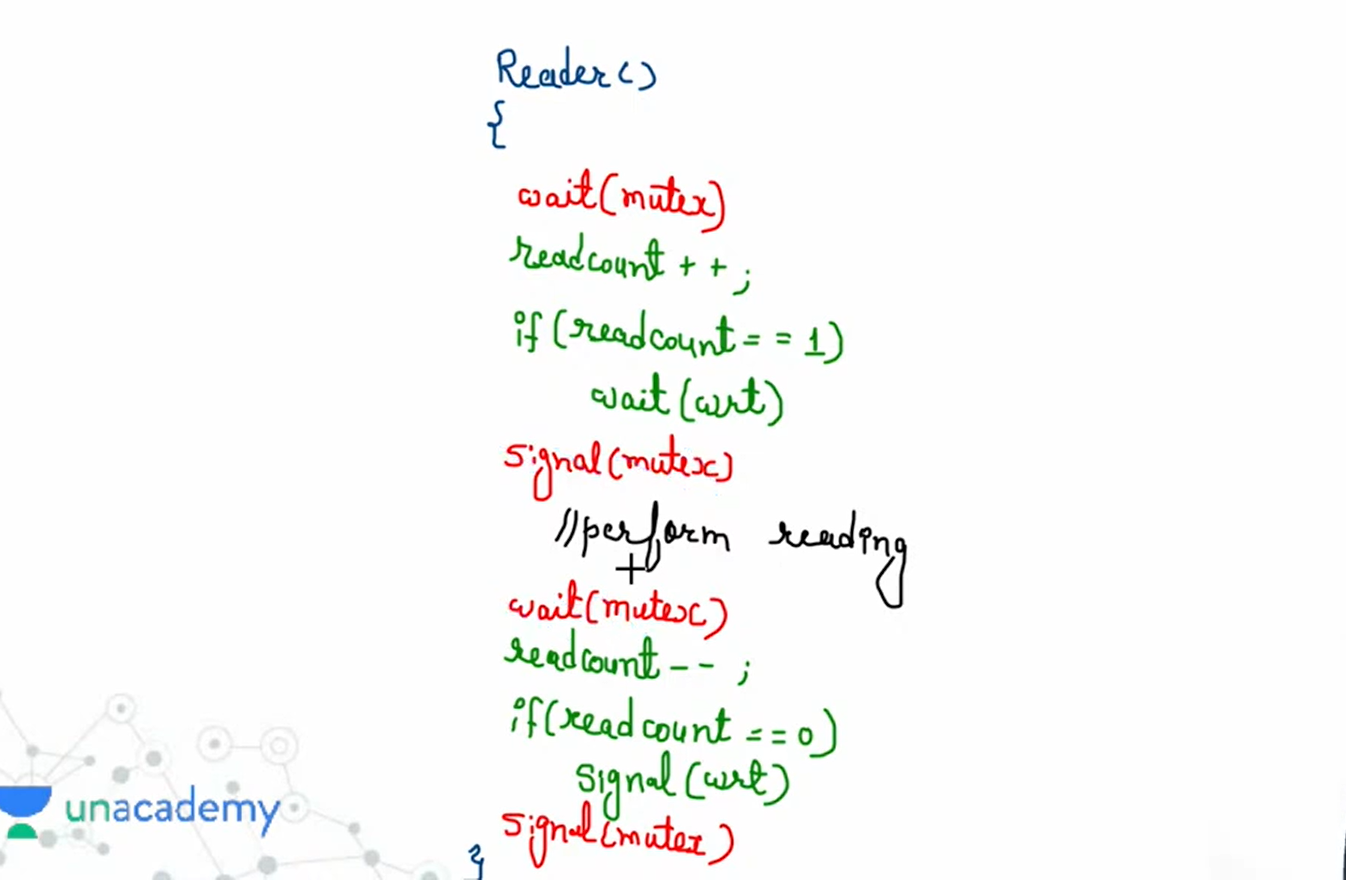 Reader()
{
wait(mutex)
readcount + + ;
if (readcount = = 1)
wait(wrt)
signal(mutex)
//perform reading
wait(mutex)
readcount - - ;
if(readcount == 0)
signal(wrt)
signal(mutex)
}
unacademy